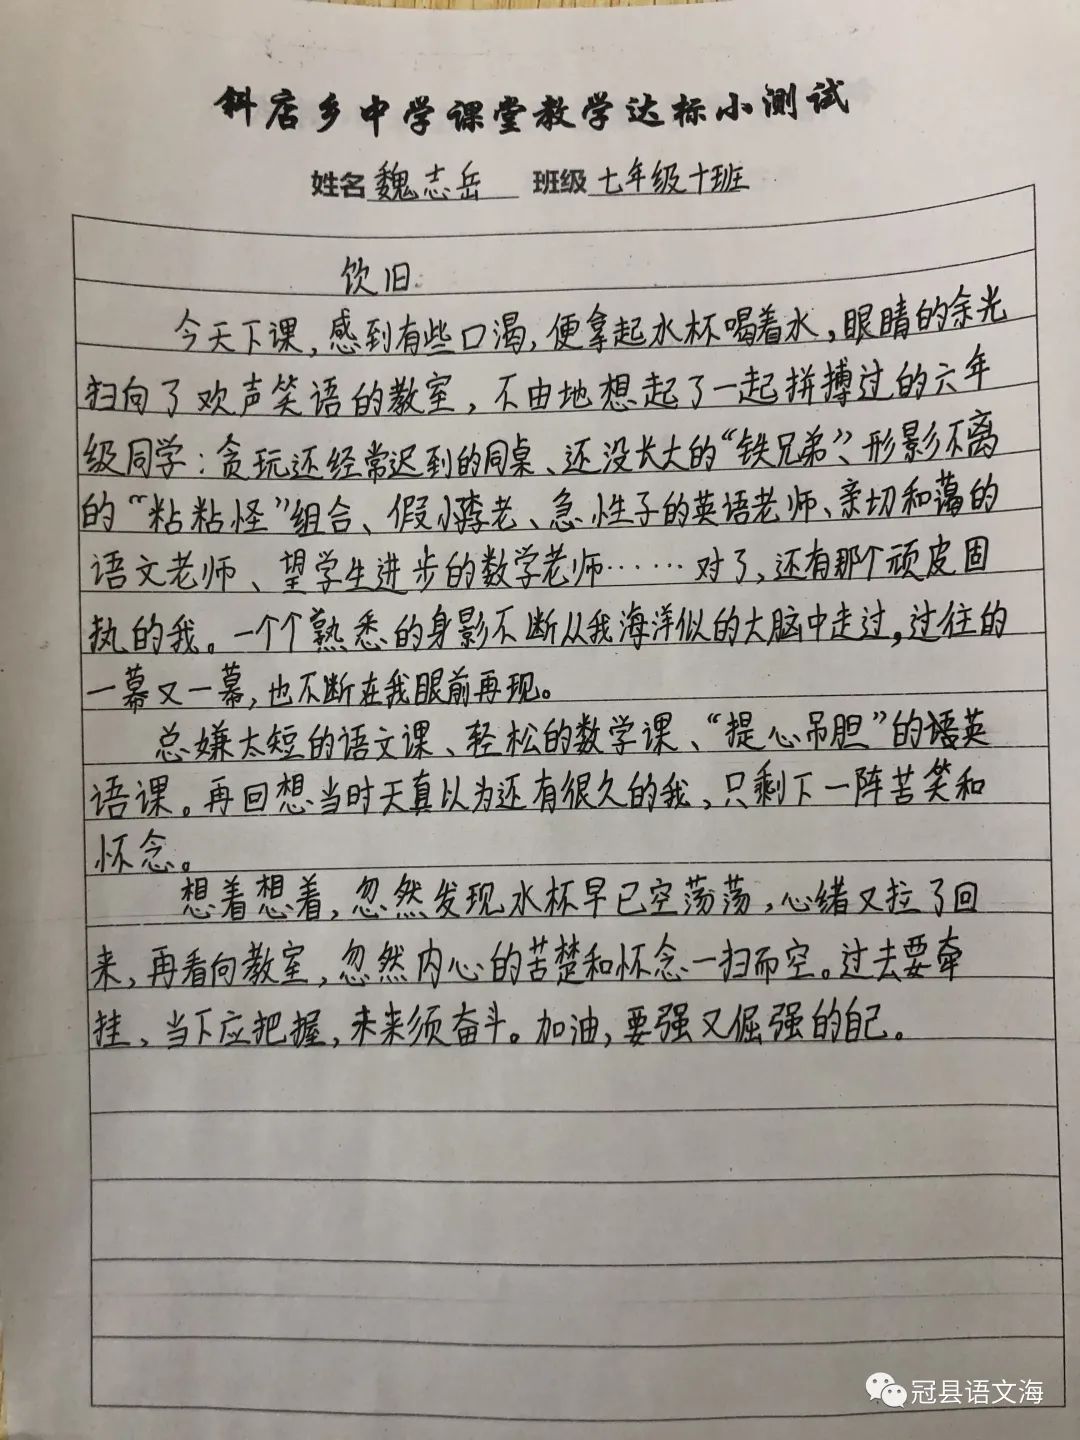 斜店乡中学课堂教学达标小测试
姓名 魏志岳 班级 七年级十班
饮旧
今天下课，感到有些口渴，便拿起水杯喝着水，眼睛的余光
扫向了欢声笑语的教室，不由地想起了一起拼搏过的六年
级同学：贪玩还经常迟到的同桌、还没长大的“铁兄弟”、形影不离
的“粘粘怪”组合、假小李老、急性子的英语老师、亲切和蔼的
语文老师、望学生进步的数学老师……对了，还有那个顽皮固
执的我。一个个熟悉的身影不断从我海洋似的大脑中走过，过往的
一幕又一幕，也不断在我眼前再现。
总嫌太短的语文课、轻松的数学课、“提心吊胆”的英
语课。再回想当时天真以为还有很久的我，只剩下一阵苦笑和
怀念。
想着想着，忽然发现水杯早已空荡荡，心绪又拉了回
来，再看向教室，忽然内心的苦楚和怀念一扫而空。过去要牵
挂，当下应把握，未来须奋斗。加油，要强又倔强的自己。
冠县语文海